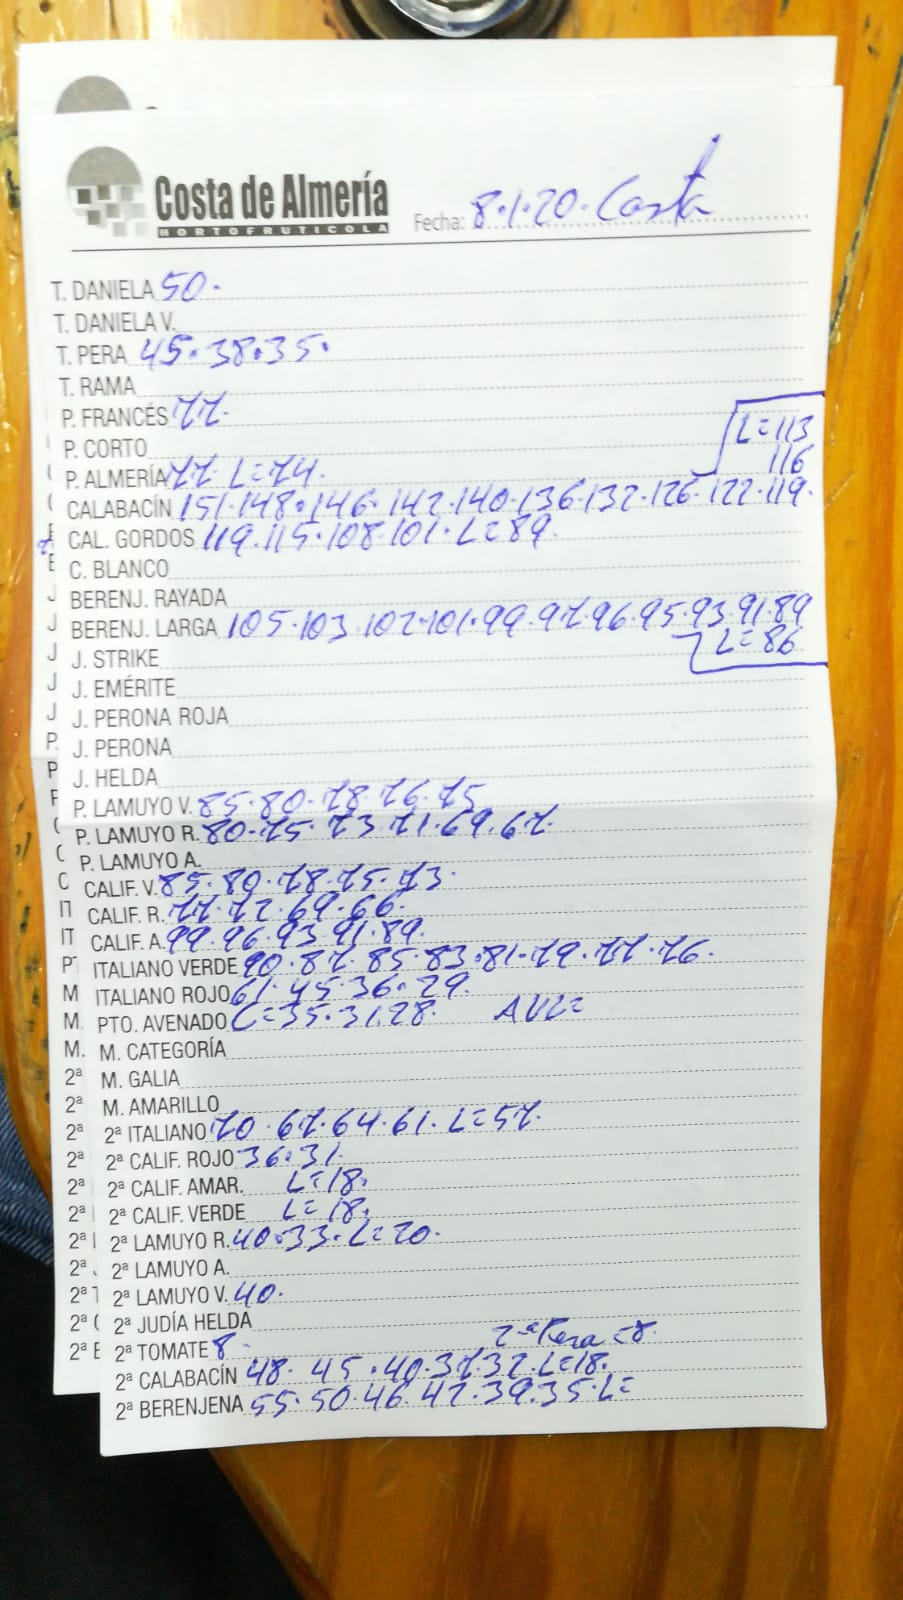 Costa de Almería
HORTOFRUTICOLA
Fecha: 8.1.20. Costa
T. DANIELA 50.
T. DANIELA V.
T. PERA 45.38.35.
T. RAMA
P. FRANCÉS 77.
P. CORTO
L=113
116
P. ALMERÍA 77 L=74.
CALABACÍN 151.148.146.142.140.136.132.126.122.119.
CAL. GORDOS 119.115.108.101.L=89.
C. BLANCO
BERENJ. RAYADA
BERENJ. LARGA 105.103.102.101.99.97.96.95.93.91.89
L=86
J. STRIKE
J. EMÉRITE
J. PERONA ROJA
J. PERONA
J. HELDA
P. LAMUYO V. 85.80.78.76.75
P. LAMUYO R. 80.75.73.71.69.67.
P. LAMUYO A.
CALIF. V. 85.80.78.75.73.
CALIF. R. 77.72.69.66.
CALIF. A. 99.96.93.91.89.
ITALIANO VERDE 90.87.85.83.81.79.77.76.
ITALIANO ROJO 61.45.36.29.
PTO. AVENADO C=35.31.28.
M. CATEGORÍA
M. GALIA
M. AMARILLO
2ª ITALIANO 70.67.64.61.L=57.
2ª CALIF. ROJO 36.31.
2ª CALIF. AMAR. L=18.
2ª CALIF. VERDE L=18.
2ª LAMUYO R. 40.33.L=20.
2ª LAMUYO A.
2ª LAMUYO V. 40.
2ª JUDÍA HELDA
2ª TOMATE 8. 2ª Pera =8.
2ª CALABACÍN 48.45.40.37.32.L=18.
2ª BERENJENA 55.50.46.42.39.35.L=